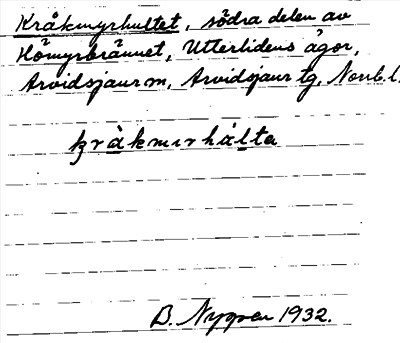 Kråkmyrhultet, södra delen av
Hömyrbrännet, Utterlidens ägor,
Arvidsjaur sn, Arvidsjaur tg, Norrb. l.
kråkmırhálta
B. Nygren 1932.